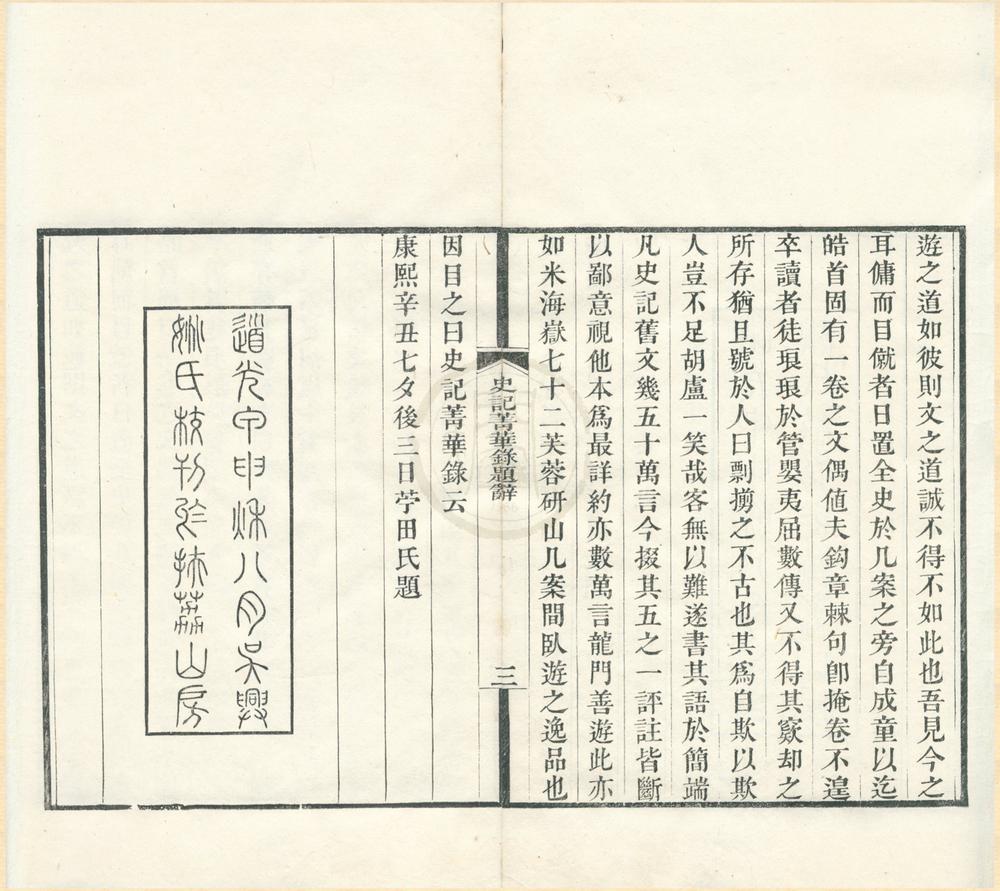 遊之道如彼則文之道誠不得不如此也吾見今之
耳傭而目僦者日置全史於几案之旁自成童以迄
皓首固有一卷之文偶値夫鈎章棘句卽掩卷不遑
卒讀者徒琅琅於管嬰夷屈數傳又不得其窾却之
所存猶且號於人曰剽擷之不古也其爲自欺以欺
人豈不足胡盧一笑哉客無以難遂書其語於簡端
凡史記舊文幾五十萬言今掇其五之一評註皆斷
以鄙意視他本爲最詳約亦數萬言龍門善遊此亦
如米海嶽七十二芙蓉研山几案間臥遊之逸品也
史記菁華錄題辭
三
因目之曰史記菁華錄云
康熙辛丑七夕後三日苧田氏題
道光甲申秌八月吳興
姚氏校刊於扶荔山房